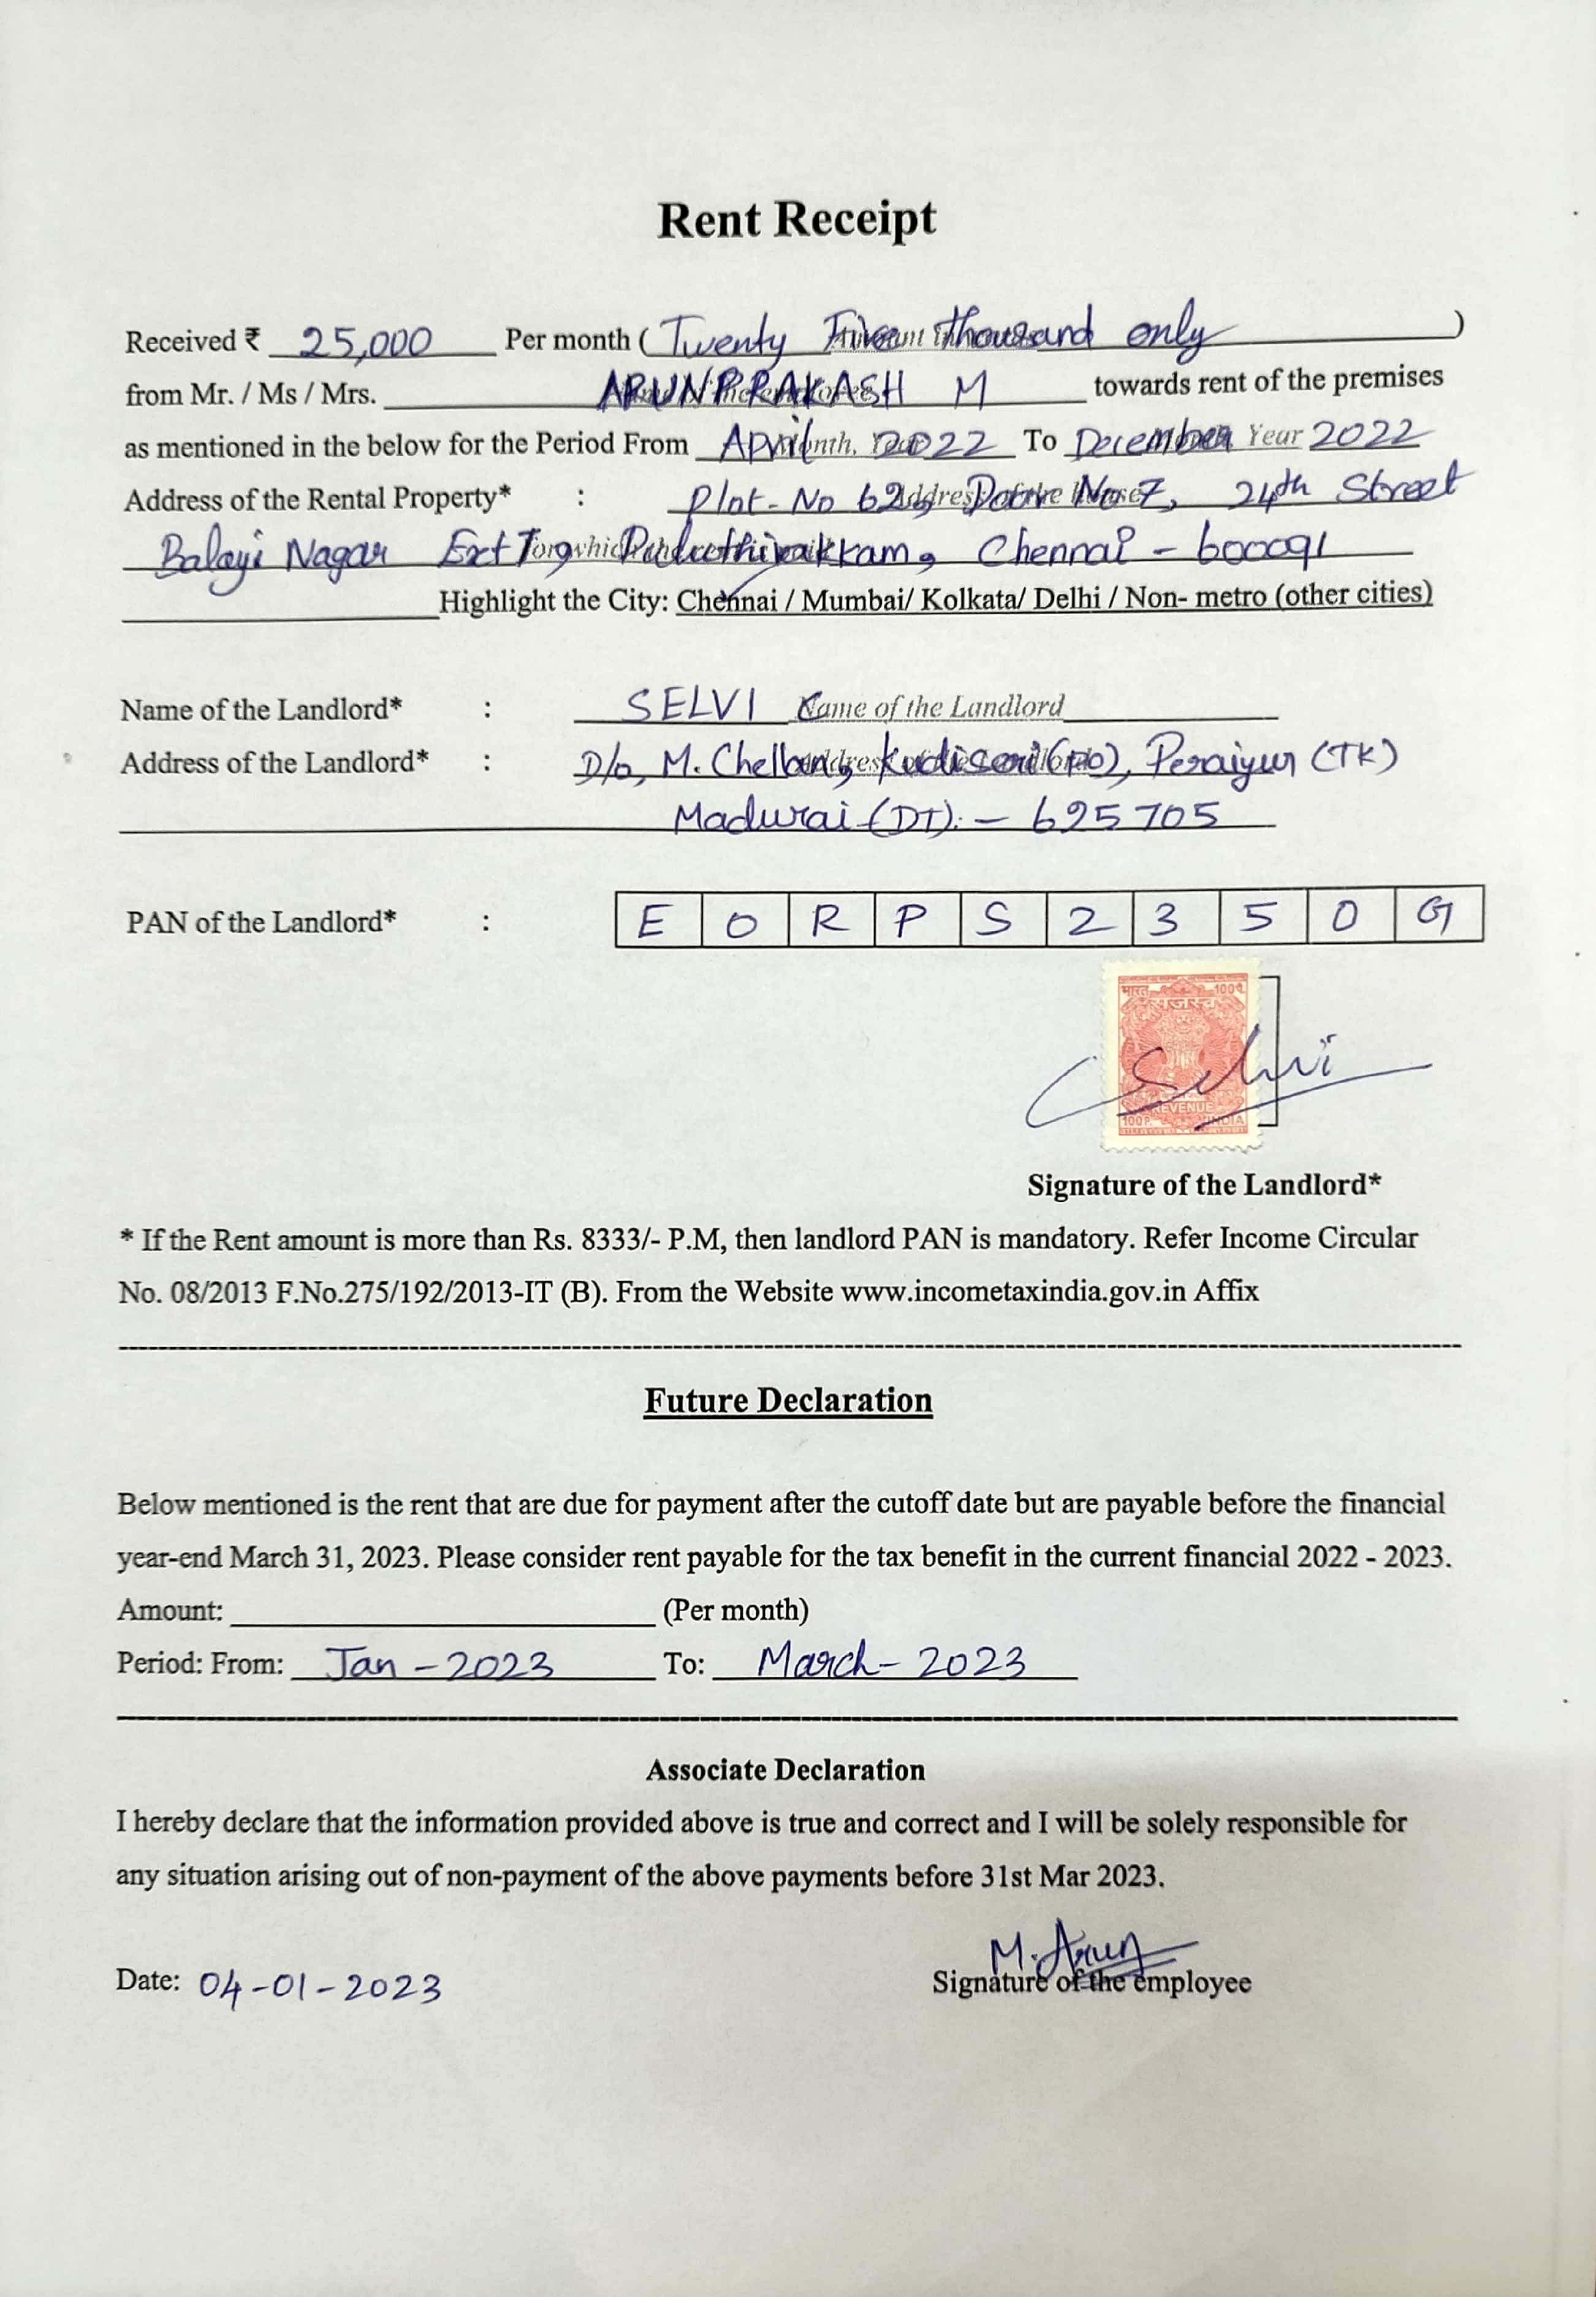 Rent Receipt
Received ₹ 25,000 Per month ( Twenty Five Thousand only )
from Mr. / Ms / Mrs. ARUNPRAKASH M towards rent of the premises
as mentioned in the below for the Period From April 2022 To December Year 2022
Address of the Rental Property* : Plot-No 62, Door No 7, 24th Street
Balaji Nagar Ext, Puluthivakkam, Chennai - 600091
Highlight the City: Chennai / Mumbai/ Kolkata/ Delhi / Non- metro (other cities)
Name of the Landlord* : SELVI C Name of the Landlord
Address of the Landlord* : D/o, M. Chellan, Kudiseri (PO), Peraiyur (TK)
Madurai (DT). - 625705
PAN of the Landlord* : E O R P S 2 3 5 0 G
भारत 100प.
राजस्व
REVENUE
100P. INDIA
Selvi
Signature of the Landlord*
* If the Rent amount is more than Rs. 8333/- P.M, then landlord PAN is mandatory. Refer Income Circular
No. 08/2013 F.No.275/192/2013-IT (B). From the Website www.incometaxindia.gov.in Affix
Future Declaration
Below mentioned is the rent that are due for payment after the cutoff date but are payable before the financial
year-end March 31, 2023. Please consider rent payable for the tax benefit in the current financial 2022 - 2023.
Amount: (Per month)
Period: From: Jan - 2023 To: March - 2023
Associate Declaration
I hereby declare that the information provided above is true and correct and I will be solely responsible for
any situation arising out of non-payment of the above payments before 31st Mar 2023.
M. Arun
Date: 04-01-2023 Signature of the employee